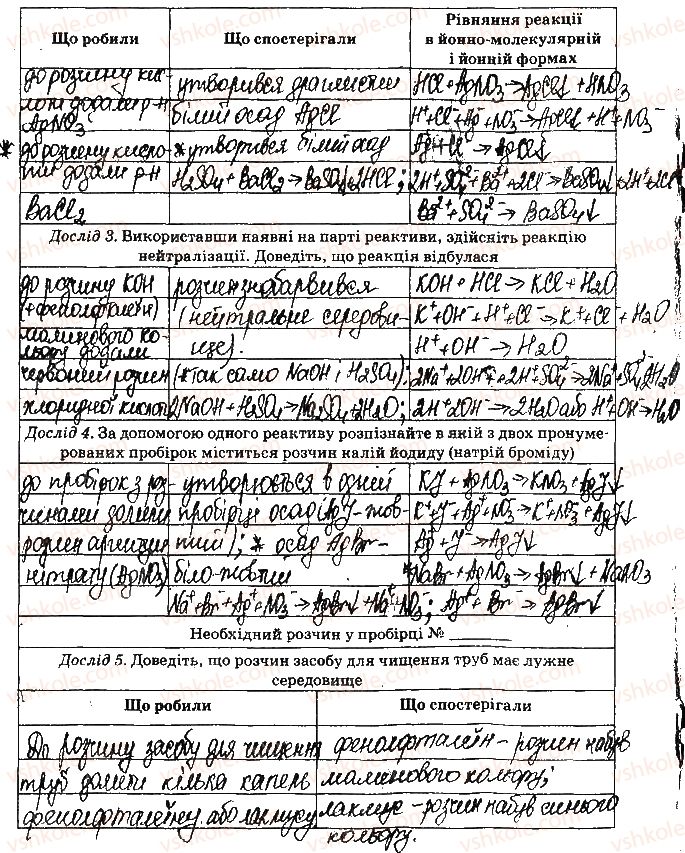 Що робили
Що спостерігали
Рівняння реакції
в йонно-молекулярній
і йонній формах
до розчину кис-
лоти додали р-н
AgNO₃
утворився драглистий
білий осад AgCl
HCl + AgNO₃ → AgCl↓ + HNO₃
H⁺ + Cl⁻ + Ag⁺ + NO₃⁻ → AgCl↓ + H⁺ + NO₃⁻
Ag⁺ + Cl⁻ → AgCl↓
* до розчину кисло-
ти додали р-н
BaCl₂
* утворився білий осад
H₂SO₄ + BaCl₂ → BaSO₄↓ + 2HCl;
2H⁺ + SO₄²⁻ + Ba²⁺ + 2Cl⁻ → BaSO₄↓ + 2H⁺ + 2Cl⁻
Ba²⁺ + SO₄²⁻ → BaSO₄↓
Дослід 3. Використавши наявні на парті реактиви, здійсніть реакцію
нейтралізації. Доведіть, що реакція відбулася
до розчину KOH
(+ фенолфталеїн)
малинового ко-
льору додали
червоний розчин
хлоридної кислоти
розчин знебарвився
(нейтральне середови-
ще).
(* так само NaOH і H₂SO₄):
2NaOH + H₂SO₄ → Na₂SO₄ + 2H₂O;
KOH + HCl → KCl + H₂O
K⁺ + OH⁻ + H⁺ + Cl⁻ → K⁺ + Cl⁻ + H₂O
H⁺ + OH⁻ → H₂O
2Na⁺ + 2OH⁻ + 2H⁺ + SO₄²⁻ → 2Na⁺ + SO₄²⁻ + 2H₂O
2H⁺ + 2OH⁻ → 2H₂O або H⁺ + OH⁻ → H₂O
Дослід 4. За допомогою одного реактиву розпізнайте в якій з двох пронуме-
рованих пробірок міститься розчин калій йодиду (натрій броміду)
до пробірок з роз-
чинами долили
розчин аргентум
нітрату (AgNO₃)
утворюється в одній
пробірці осад (AgJ - жов-
тий); * осад AgBr -
біло-жовтий
KJ + AgNO₃ → KNO₃ + AgJ↓
K⁺ + J⁻ + Ag⁺ + NO₃⁻ → K⁺ + NO₃⁻ + AgJ↓
Ag⁺ + J⁻ → AgJ↓
* NaBr + AgNO₃ → AgBr↓ + NaNO₃
Na⁺ + Br⁻ + Ag⁺ + NO₃⁻ → AgBr↓ + Na⁺ + NO₃⁻; Ag⁺ + Br⁻ → AgBr↓
Необхідний розчин у пробірці № ______
Дослід 5. Доведіть, що розчин засобу для чищення труб має лужне
середовище
Що робили
Що спостерігали
До розчину засобу для чищення
труб долили кілька капель
фенолфталеїну або лакмусу
фенолфталеїн - розчин набув
малинового кольору;
лакмус - розчин набув синього
кольору.